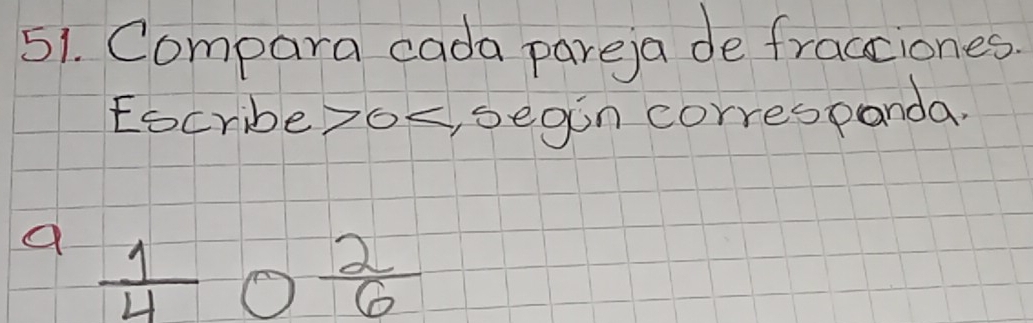 51. Compara cada pareja de fracciones.
Escribe > o <, según corresponda.
a 1/4 ○ 2/6